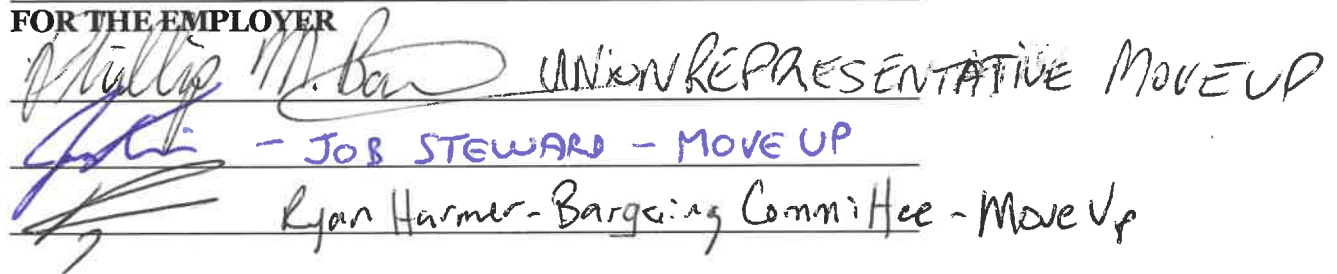 FOR THE EMPLOYER
Phillip M. UNION REPRESENTATIVE MOVEUP
- JOB STEWARD - MOVE UP
Ryan Harmer - Bargaing Committee - Move Up